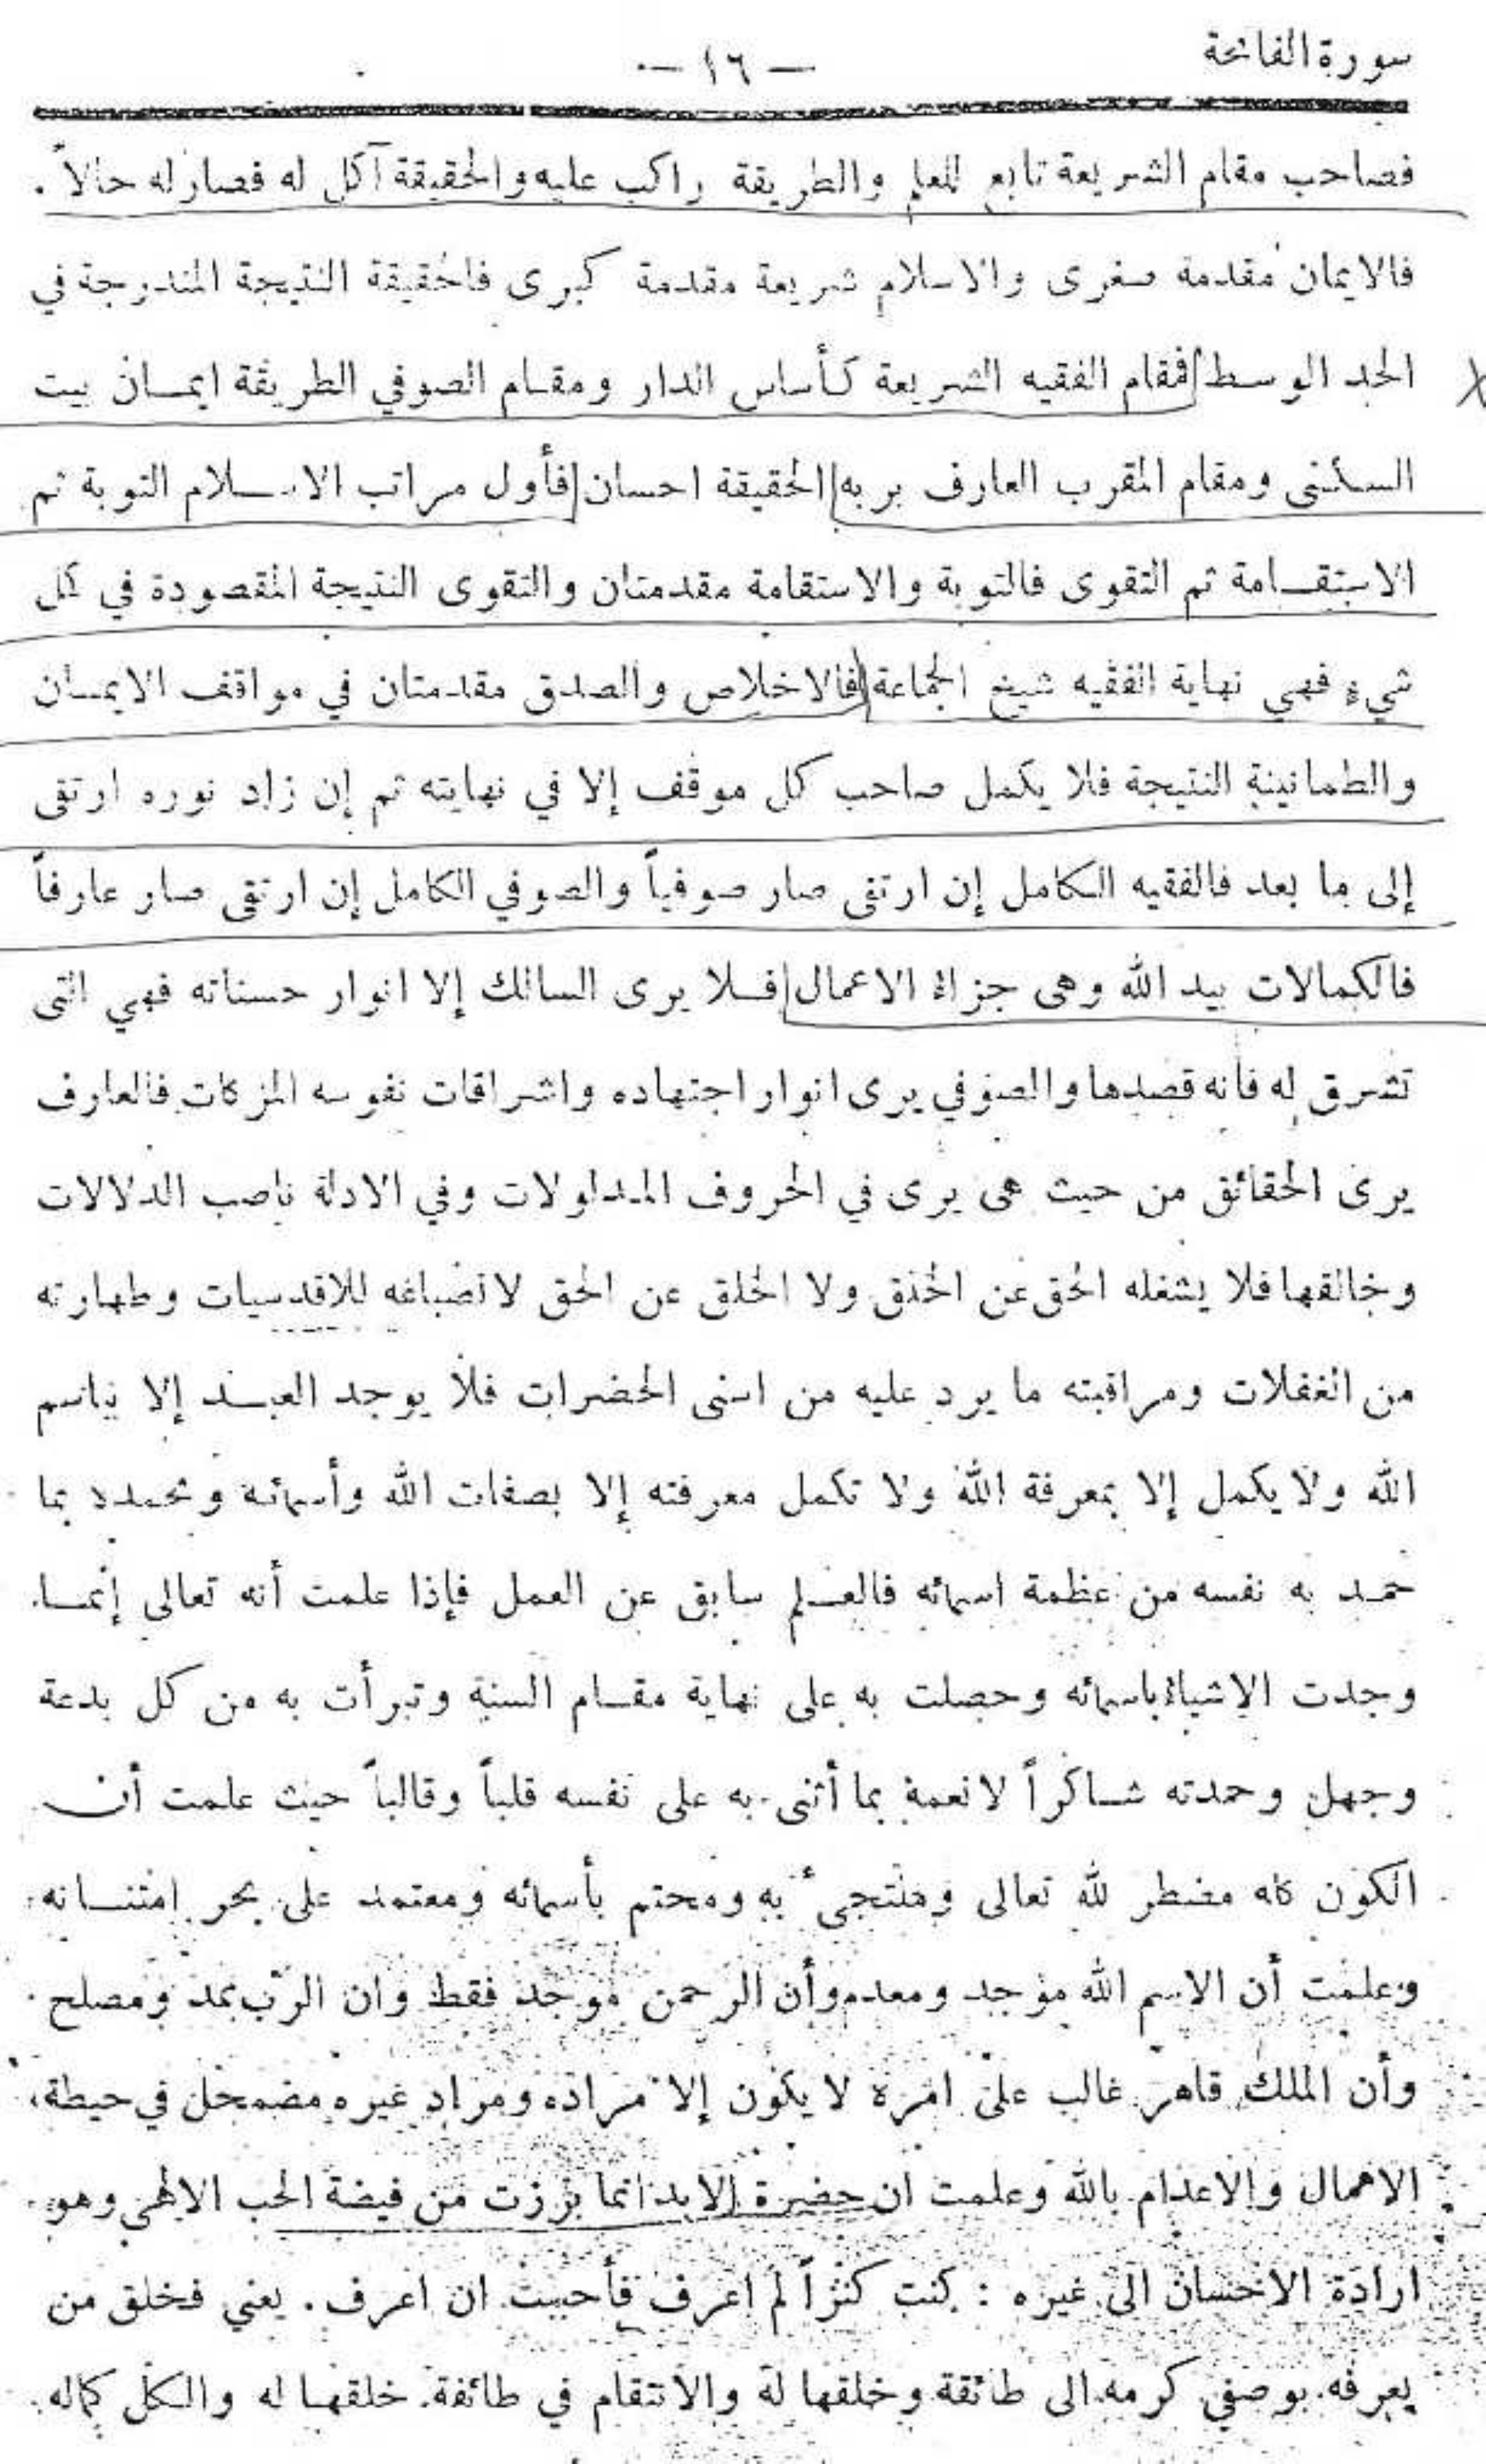 سورة الفاتحة
— ١٦ —
فصاحب مقام الشريعة تابع للعلم والطريقة راكب عليه والحقيقة آكل له فصار له حالاً .
فالايمان مقدمة صغرى والاسلام شريعة مقدمة كبرى فالحقيقة النتيجة المندرجة في
الحد الوسط فمقام الفقيه الشريعة كأساس الدار ومقام الصوفي الطريقة ايمان بيت
السكنى ومقام المقرب العارف بربه الحقيقة احسان فأول مراتب الاسلام التوبة ثم
الاستقامة ثم التقوى فالتوبة والاستقامة مقدمتان والتقوى النتيجة المقصودة في كل
شيء فهي نهاية الفقيه شيخ الجماعة فالاخلاص والصدق مقدمتان في مواقف الايمان
والطمانينة النتيجة فلا يكمل صاحب كل موقف إلا في نهايته ثم إن زاد نوره ارتقى
إلى ما بعد فالفقيه الكامل إن ارتقى صار صوفياً والصوفي الكامل إن ارتقى صار عارفاً
فالكمالات بيد الله وهي جزاء الاعمال فلا يرى السالك إلا انوار حسناته فهي التى
تشرق له فانه قصدها والصوفي يرى انوار اجتهاده واشراقات نفوسه المزكات فالعارف
يرى الحقائق من حيث هى يرى في الحروف المدلولات وفي الادلة ناصب الدلالات
وخالقها فلا يشغله الحق عن الخلق ولا الخلق عن الحق لانصباغه للاقدسيات وطهارته
من الغفلات ومراقبته ما يرد عليه من اسنى الحضرات فلا يوجد العبد إلا باسم
الله ولا يكمل إلا بمعرفة الله ولا تكمل معرفته إلا بصفات الله وأسمائه وتحمده بما
حمد به نفسه من عظمة اسمائه فالعلم سابق عن العمل فإذا علمت أنه تعالى إنما
وجدت الاشياء باسمائه وحصلت به على نهاية مقام السنة وتبرأت به من كل بدعة
وجهل وحمدته شاكراً لانعمه بما أثنى به على نفسه قلباً وقالباً حيث علمت أن
الكون كله مضطر لله تعالى وملتجىء به ومحتم بأسمائه ومعتمد على بحر امتنانه
وعلمت أن الاسم الله موجد ومعدم وأن الرحمن موجد فقط وان الرب ممد ومصلح
وأن الملك قاهر غالب على امره لا يكون إلا مراده ومراد غيره مضمحل في حيطة
الاهمال والاعدام بالله وعلمت ان حضرة الابد انما برزت من فيضة الحب الالهي وهو
ارادة الاحسان الى غيره : كنت كنزاً لم اعرف فأحببت ان اعرف . يعني فخلق من
يعرفه بوصفي كرمه الى طائفة وخلقها له والانتقام في طائفة خلقها له والكل كماله